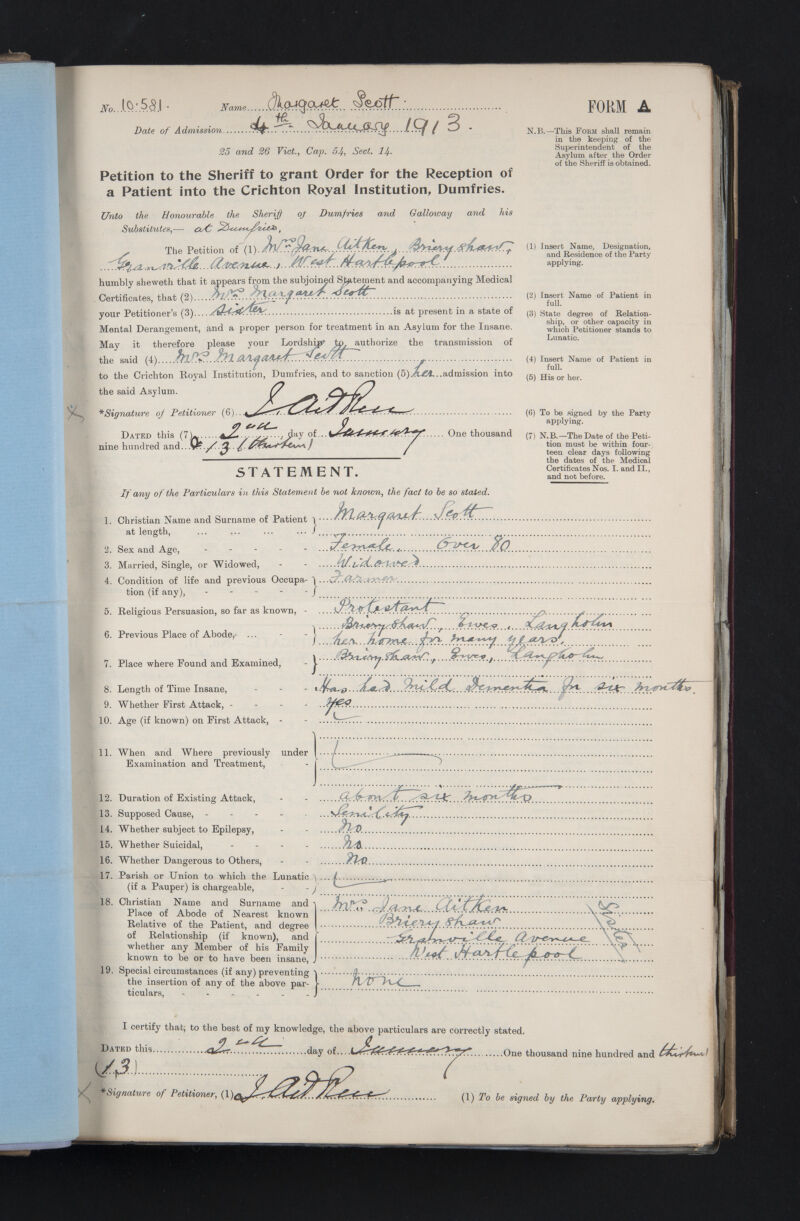 No. 10.581. Name Margaret Scott. FORM A
Date of Admission 4th January 1913.
25 and 26 Vict., Cap. 54, Sect. 14.
N.B.—This FORM shall remain
in the keeping of the
Superintendent of the
Asylum after the Order
of the Sheriff is obtained.
Petition to the Sheriff to grant Order for the Reception of
a Patient into the Crichton Royal Institution, Dumfries.
Unto the Honourable the Sheriff of Dumfries and Galloway and his
Substitutes,— at Dumfries,
The Petition of (1) Mrs Jane Aitken, Brieryshaw,
Granville Avenue, West Hartlepool
(1) Insert Name, Designation,
and Residence of the Party
applying.
humbly sheweth that it appears from the subjoined Statement and accompanying Medical
Certificates, that (2) Mrs Margaret Scott
(2) Insert Name of Patient in
full.
your Petitioner's (3) Sister is at present in a state of
(3) State degree of Relation-
ship, or other capacity in
which Petitioner stands to
Lunatic.
Mental Derangement, and a proper person for treatment in an Asylum for the Insane.
May it therefore please your Lordship to authorize the transmission of
the said (4) Mrs Margaret Scott
(4) Insert Name of Patient in
full.
to the Crichton Royal Institution, Dumfries, and to sanction (5) her admission into
(5) His or her.
the said Asylum.
*Signature of Petitioner (6) J. Aitken
(6) To be signed by the Party
applying.
DATED this (7) 2nd day of January One thousand
nine hundred and 13 (thirteen)
(7) N.B.—The Date of the Peti-
tion must be within four-
teen clear days following
the dates of the Medical
Certificates Nos. I. and II.,
and not before.
STATEMENT.
If any of the Particulars in this Statement be not known, the fact to be so stated.
1. Christian Name and Surname of Patient Margaret Scott
at length, ... ... ... ...
2. Sex and Age, - - - - - Female. Over 80
3. Married, Single, or Widowed, - - Widowed
4. Condition of life and previous Occupa- Farmer
tion (if any), - - - - -
5. Religious Persuasion, so far as known, - Protestant
6. Previous Place of Abode, ... - - Brieryshaw, Ewes, Langholm
her home for many years.
7. Place where Found and Examined, - Brieryshaw, Ewes, Langholm
8. Length of Time Insane, - - - Has had mild Dementia for six months.
9. Whether First Attack, - - - - Yes
10. Age (if known) on First Attack, - -
11. When and Where previously under
Examination and Treatment, -
12. Duration of Existing Attack, - - about six months
13. Supposed Cause, - - - - - Senility
14. Whether subject to Epilepsy, - - No
15. Whether Suicidal, - - - - No
16. Whether Dangerous to Others, - - No
17. Parish or Union to which the Lunatic
(if a Pauper) is chargeable, - -
18. Christian Name and Surname and Mrs Jane Aitken
Place of Abode of Nearest known Brieryshaw
Relative of the Patient, and degree
of Relationship (if known), and Granville Avenue (Sister)
whether any Member of his Family
known to be or to have been insane, West Hartlepool
19. Special circumstances (if any) preventing
the insertion of any of the above par- none
ticulars, - - - - - - -
I certify that, to the best of my knowledge, the above particulars are correctly stated.
DATED this 2nd day of January One thousand nine hundred and thirteen
(13)
*Signature of Petitioner, (1) J. Aitken (1) To be signed by the Party applying.